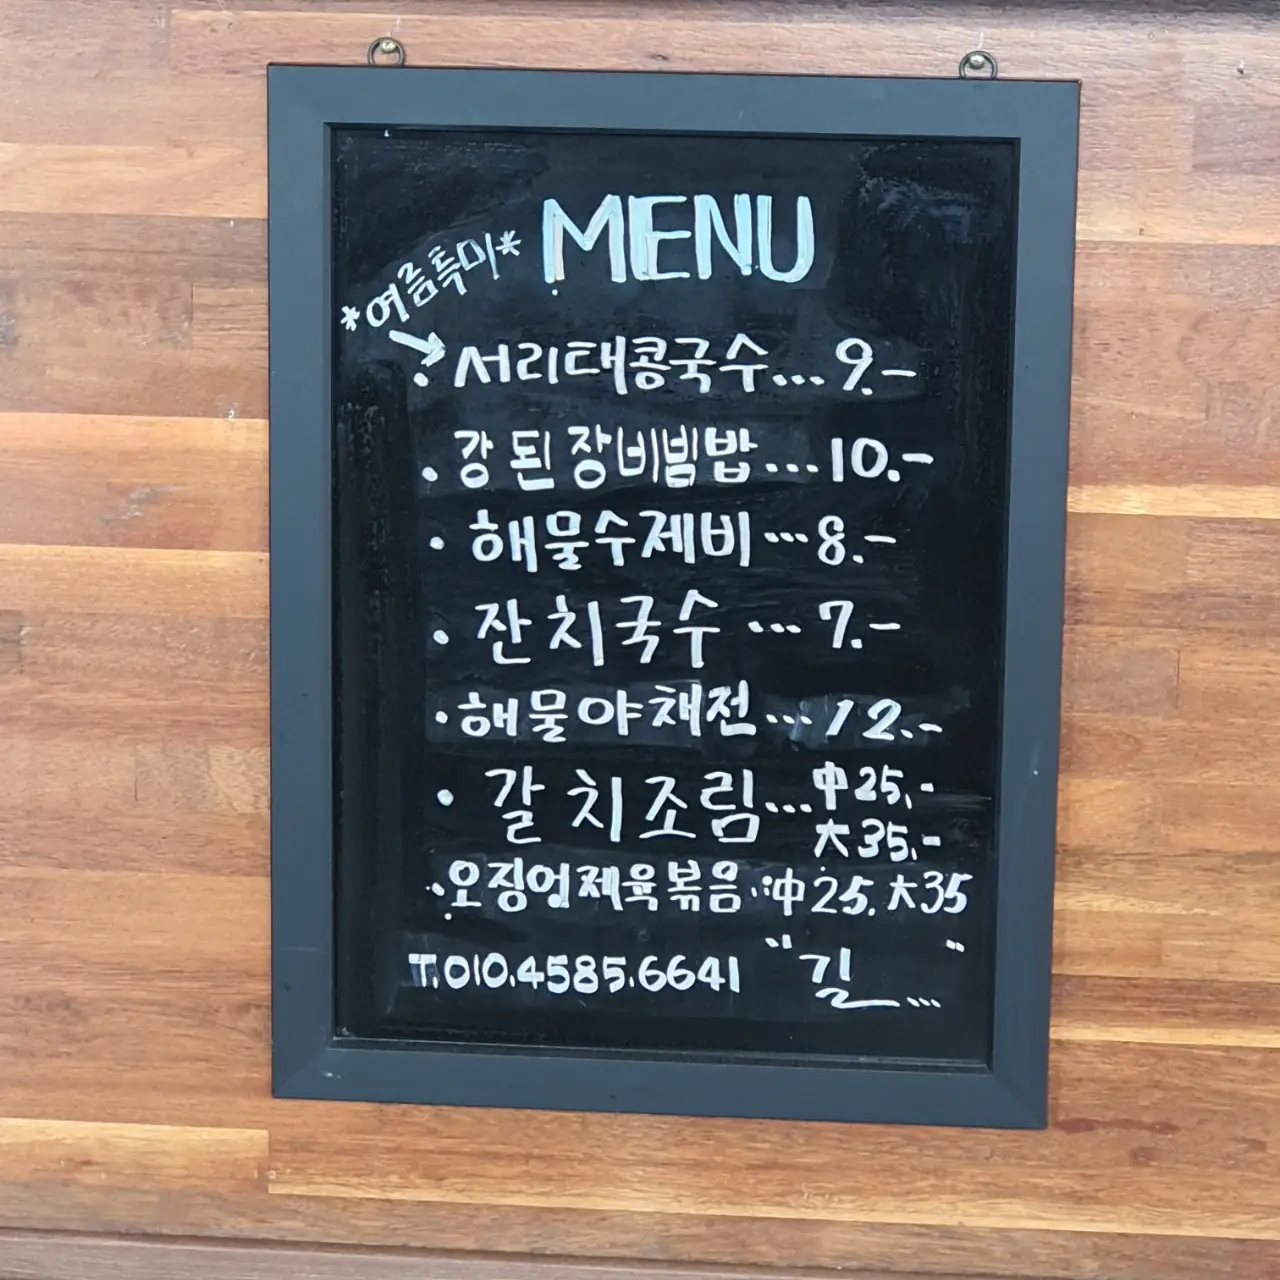 MENU
*여름특미*
· 서리태콩국수... 9.-
· 강된장비빔밥... 10.-
· 해물수제비... 8.-
· 잔치국수... 7.-
· 해물야채전... 12.-
· 갈치조림... 中 25.-
大 35.-
· 오징어제육볶음... 中 25. 大 35
T.010.4585.6641 "길..."